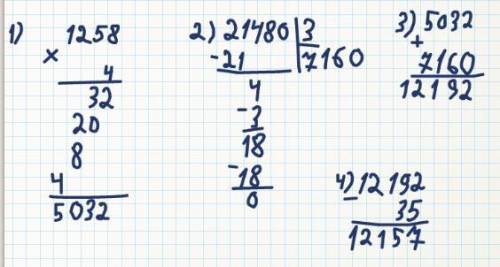 1) 1258
× 4
32
20
8
4
5032
2) 21480 | 3
-21 | 7160
4
-3
18
-18
0
3) 5032
+
7160
12192
4) 12192
- 35
12157